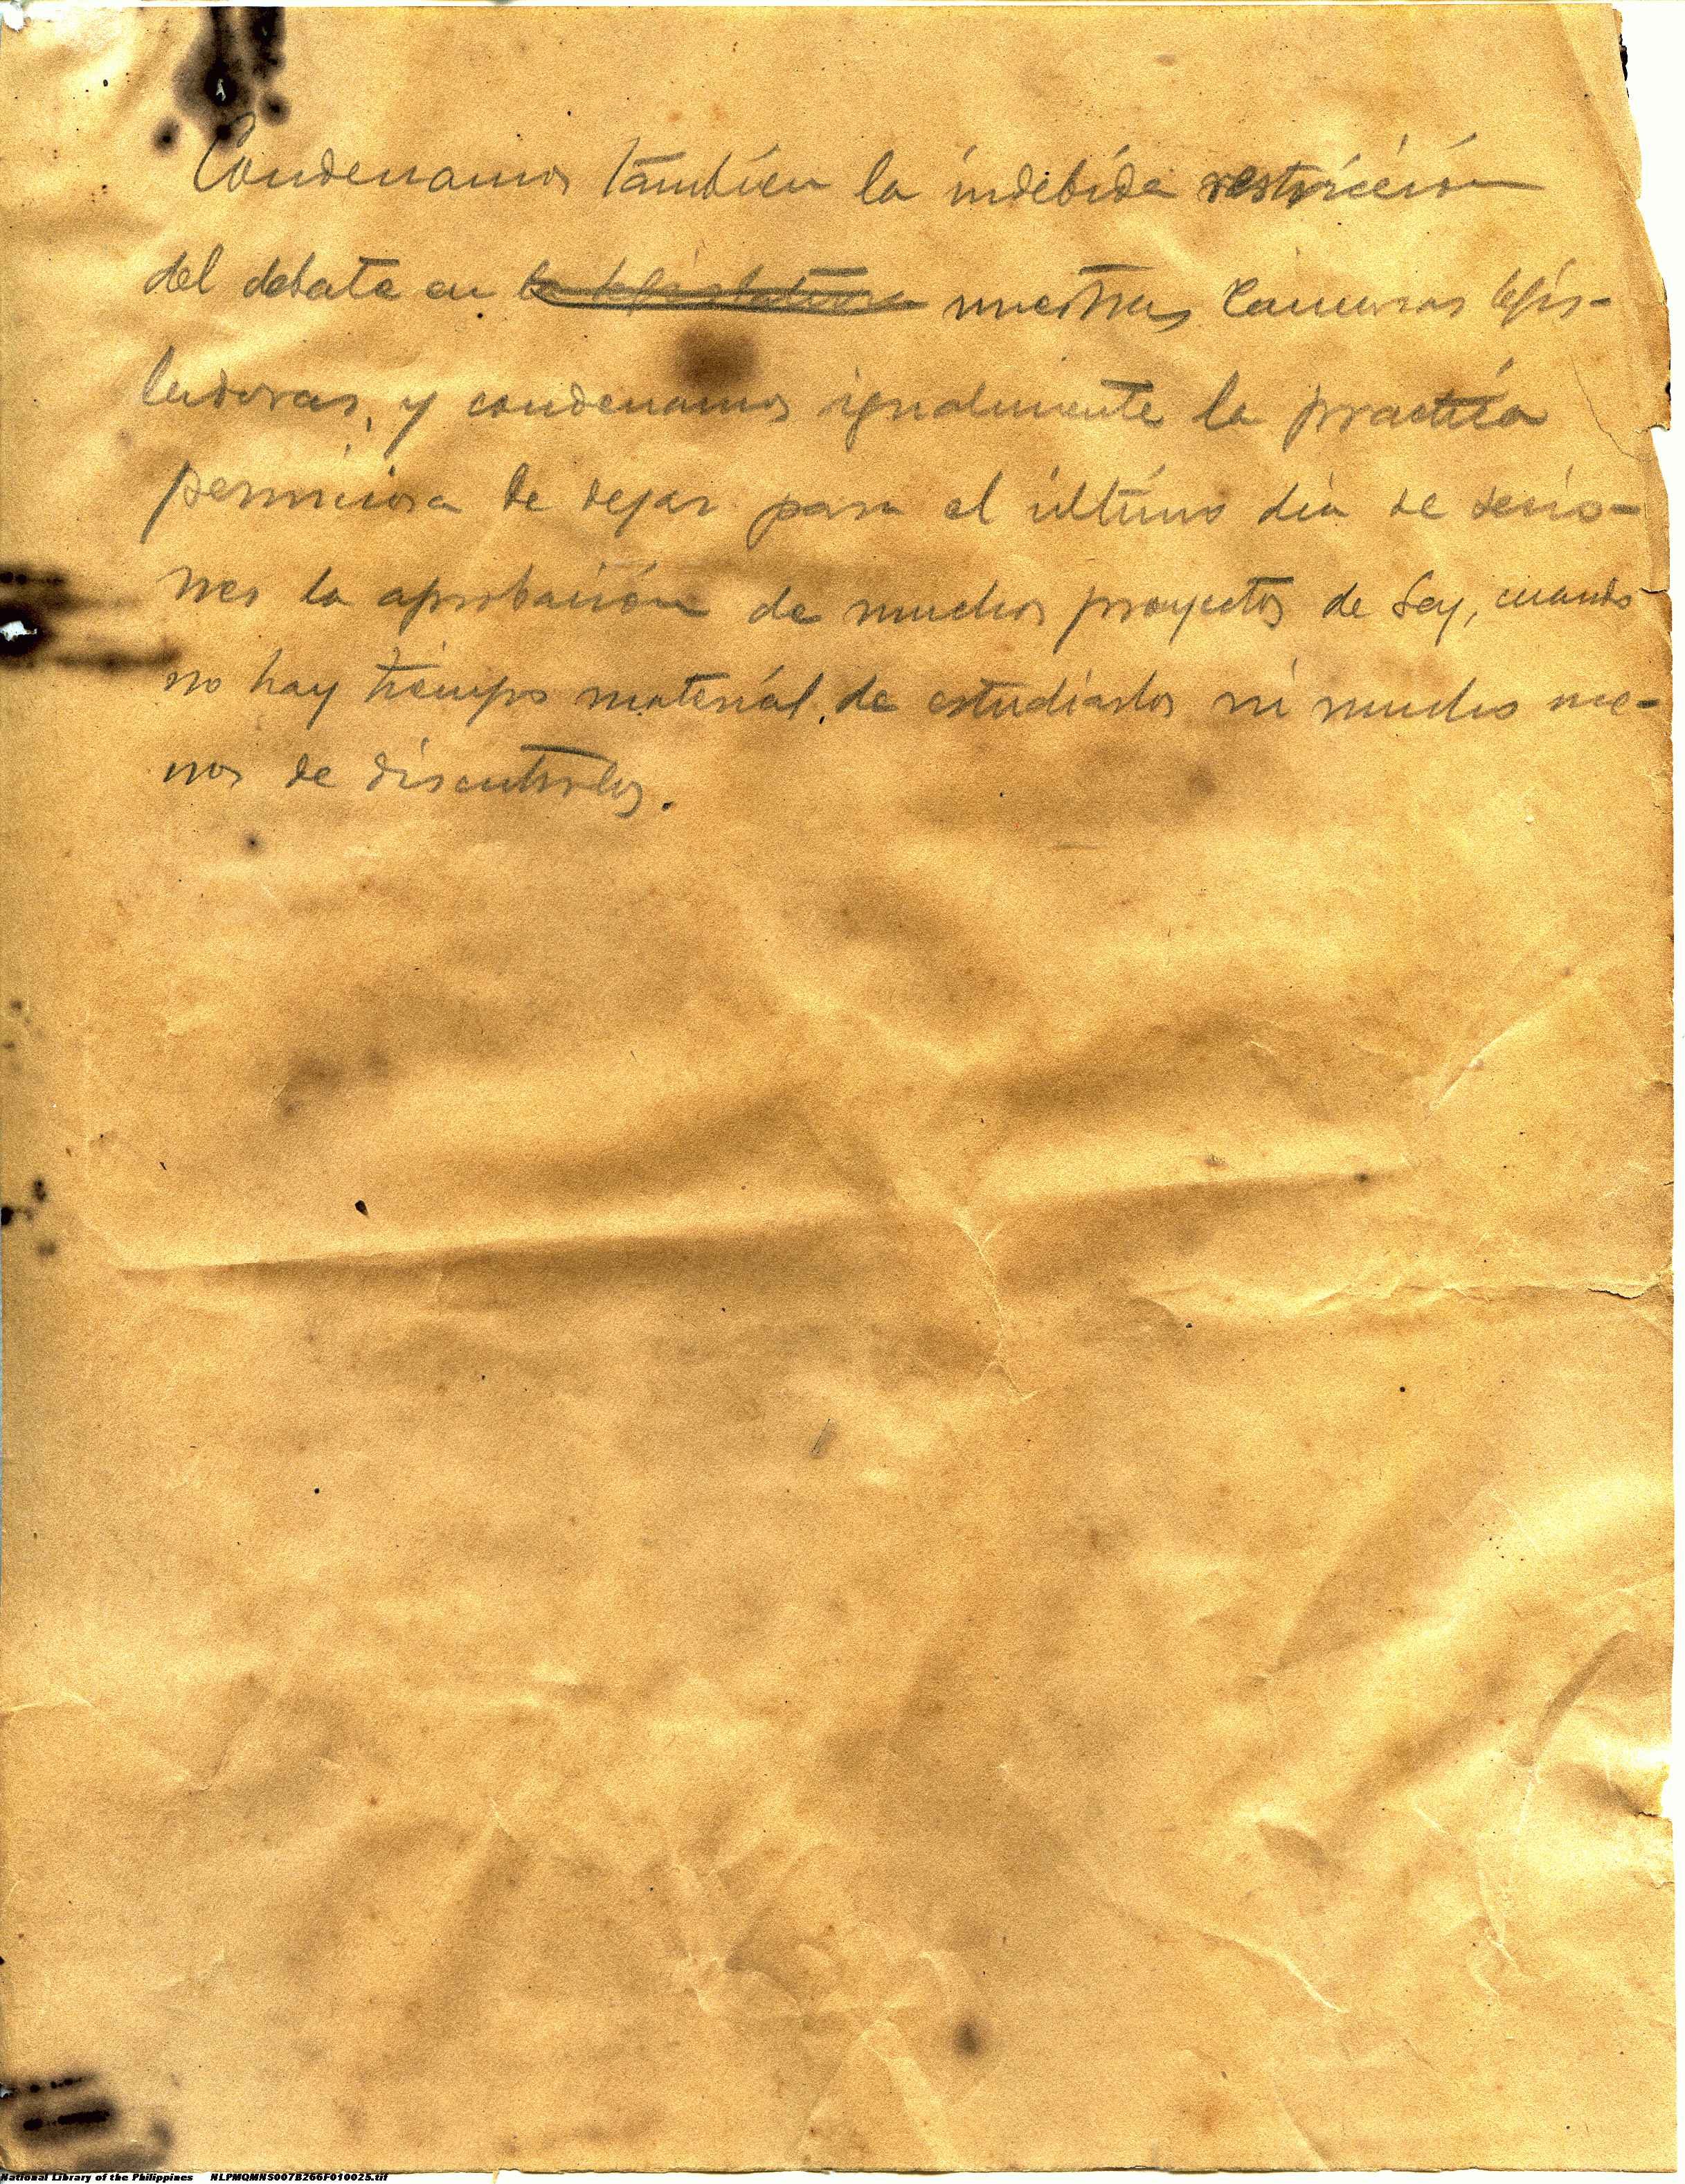 Condenamos también la indebida restricción
del debate en la legislatura nuestras Camaras legis-
ladoras, y condenamos igualmente la practica
perniciosa de dejar para el último dia de sesio-
nes la aprobación de muchos proyectos de Ley, cuando
no hay tiempo material de estudiarlos ni mucho me-
nos de discutirlos.
National Library of the Philippines NLPMQMNS007B266F010025.tif